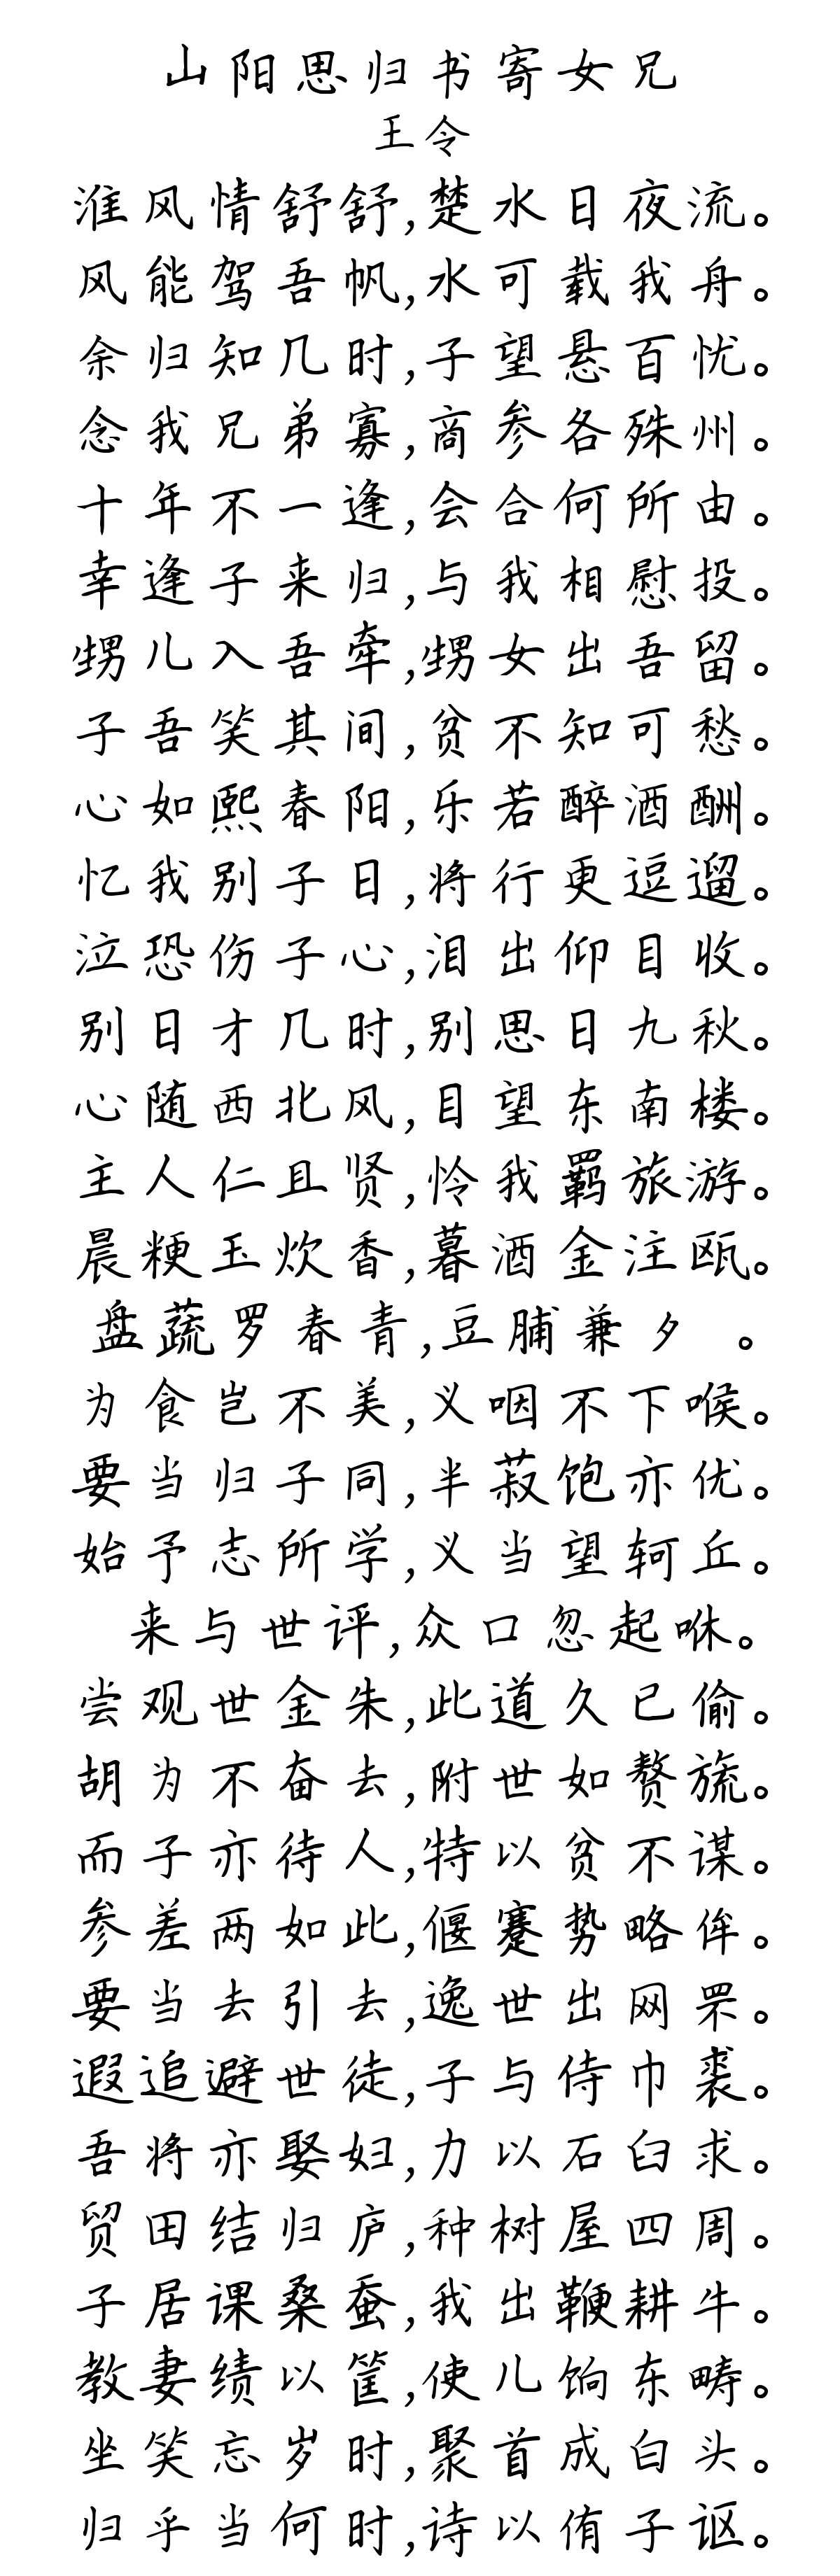 山阳思归书寄女兄
王令
淮风情舒舒,楚水日夜流。
风能驾吾帆,水可载我舟。
余归知几时,子望悬百忧。
念我兄弟寡,商参各殊州。
十年不一逢,会合何所由。
幸逢子来归,与我相慰投。
甥儿入吾牵,甥女出吾留。
子吾笑其间,贫不知可愁。
心如熙春阳,乐若醉酒酬。
忆我别子日,将行更逗遛。
泣恐伤子心,泪出仰目收。
别日才几时,别思日九秋。
心随西北风,目望东南楼。
主人仁且贤,怜我羁旅游。
晨粳玉炊香,暮酒金注瓯。
盘蔬罗春青,豆脯兼夕 。
为食岂不美,义咽不下喉。
要当归子同,半菽饱亦优。
始予志所学,义当望轲丘。
来与世评,众口忽起咻。
尝观世金朱,此道久已偷。
胡为不奋去,附世如赘旒。
而子亦待人,特以贫不谋。
参差两如此,偃蹇势略侔。
要当去引去,逸世出网罘。
遐追避世徒,子与侍巾裘。
吾将亦娶妇,力以石臼求。
贸田结归庐,种树屋四周。
子居课桑蚕,我出鞭耕牛。
教妻绩以筐,使儿饷东畴。
坐笑忘岁时,聚首成白头。
归乎当何时,诗以侑子讴。